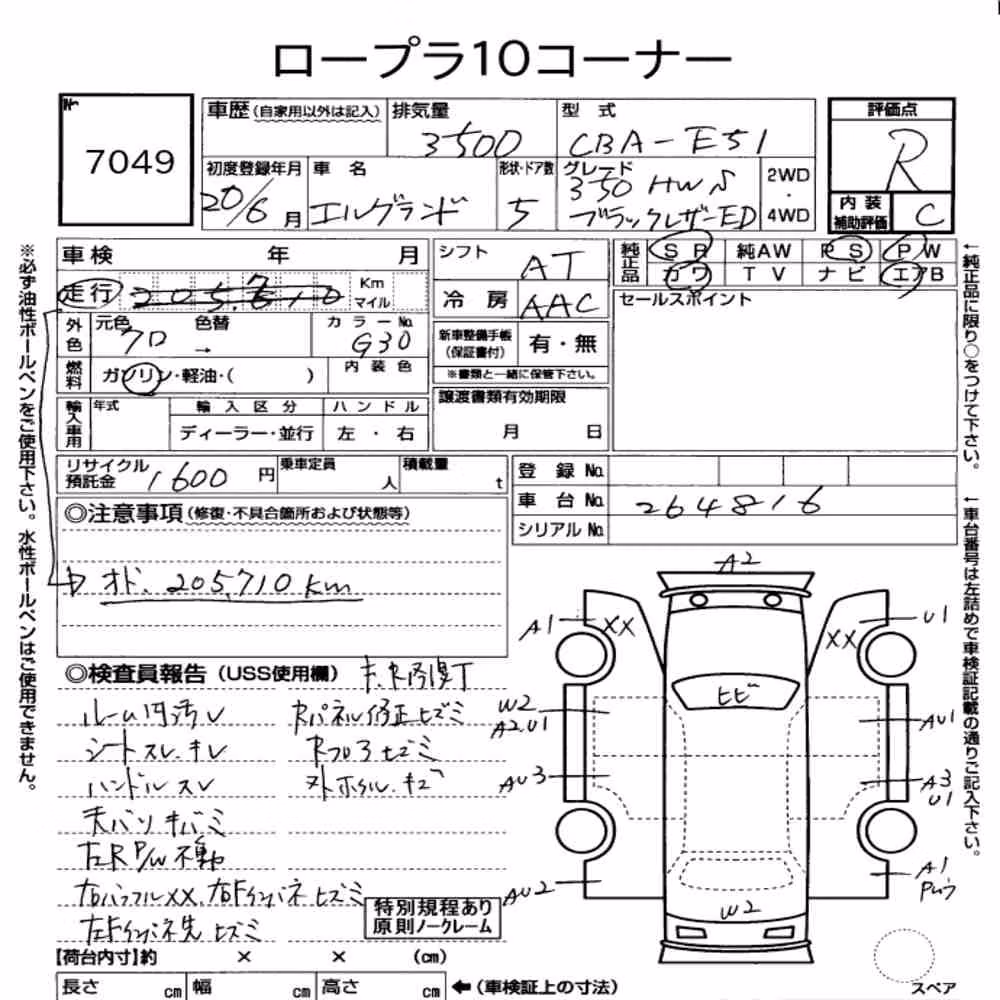 ロープラ10コーナー
No
7049
車歴 (自家用以外は記入)
排気量
3500
型 式
CBA-E51
評価点
R
初度登録年月
20/6月
車 名
エルグランド
形状・ドア数
5
グレード
350 HWS
ブラックレザーED
2WD
・
4WD
内 装
補助評価
C
車検 年 月
シフト
AT
純正品
SR 純AW PS PW
カワ TV ナビ エアB
走行
Km
マイル
冷 房
AAC
セールスポイント
外色
元色
クロ
色替
→
カラーNo.
G30
新車整備手帳
(保証書付)
有・無
※書類と一緒に保管下さい。
燃料
ガソリン・軽油・( )
内 装 色
譲渡書類有効期限
月 日
輸入車用
年式
輸 入 区 分
ハ ン ド ル
ディーラー・並行
左 ・右
リサイクル
預託金
1600円
乗車定員
人
積載量
t
登 録 No.
車 台 No.
264816
シリアル No.
◎注意事項 (修復・不具合箇所および状態等)
オド. 205,710km
◎検査員報告 (USS使用欄)
ルーム内汚レ
Rパネル修正ヒズミ
シートスレ.キレ
Rフロアヒズミ
ハンドルスレ
天バリキバミ
左R P/W不動
特別規程あり
原則ノークレーム
【荷台内寸】約 × × (cm)
長さ cm 幅 cm 高さ cm ←(車検証上の寸法)
※必ず油性ボールペンをご使用下さい。水性ボールペンはご使用できません。
↑純正品に限り○をつけて下さい。
↑車台番号は左詰めで車検証記載の通りご記入下さい。
A2
A1
XX
XX
U1
W2
A2.U1
ヒビ
AU1
AU3
A3
U1
AU2
W2
A1
スペア